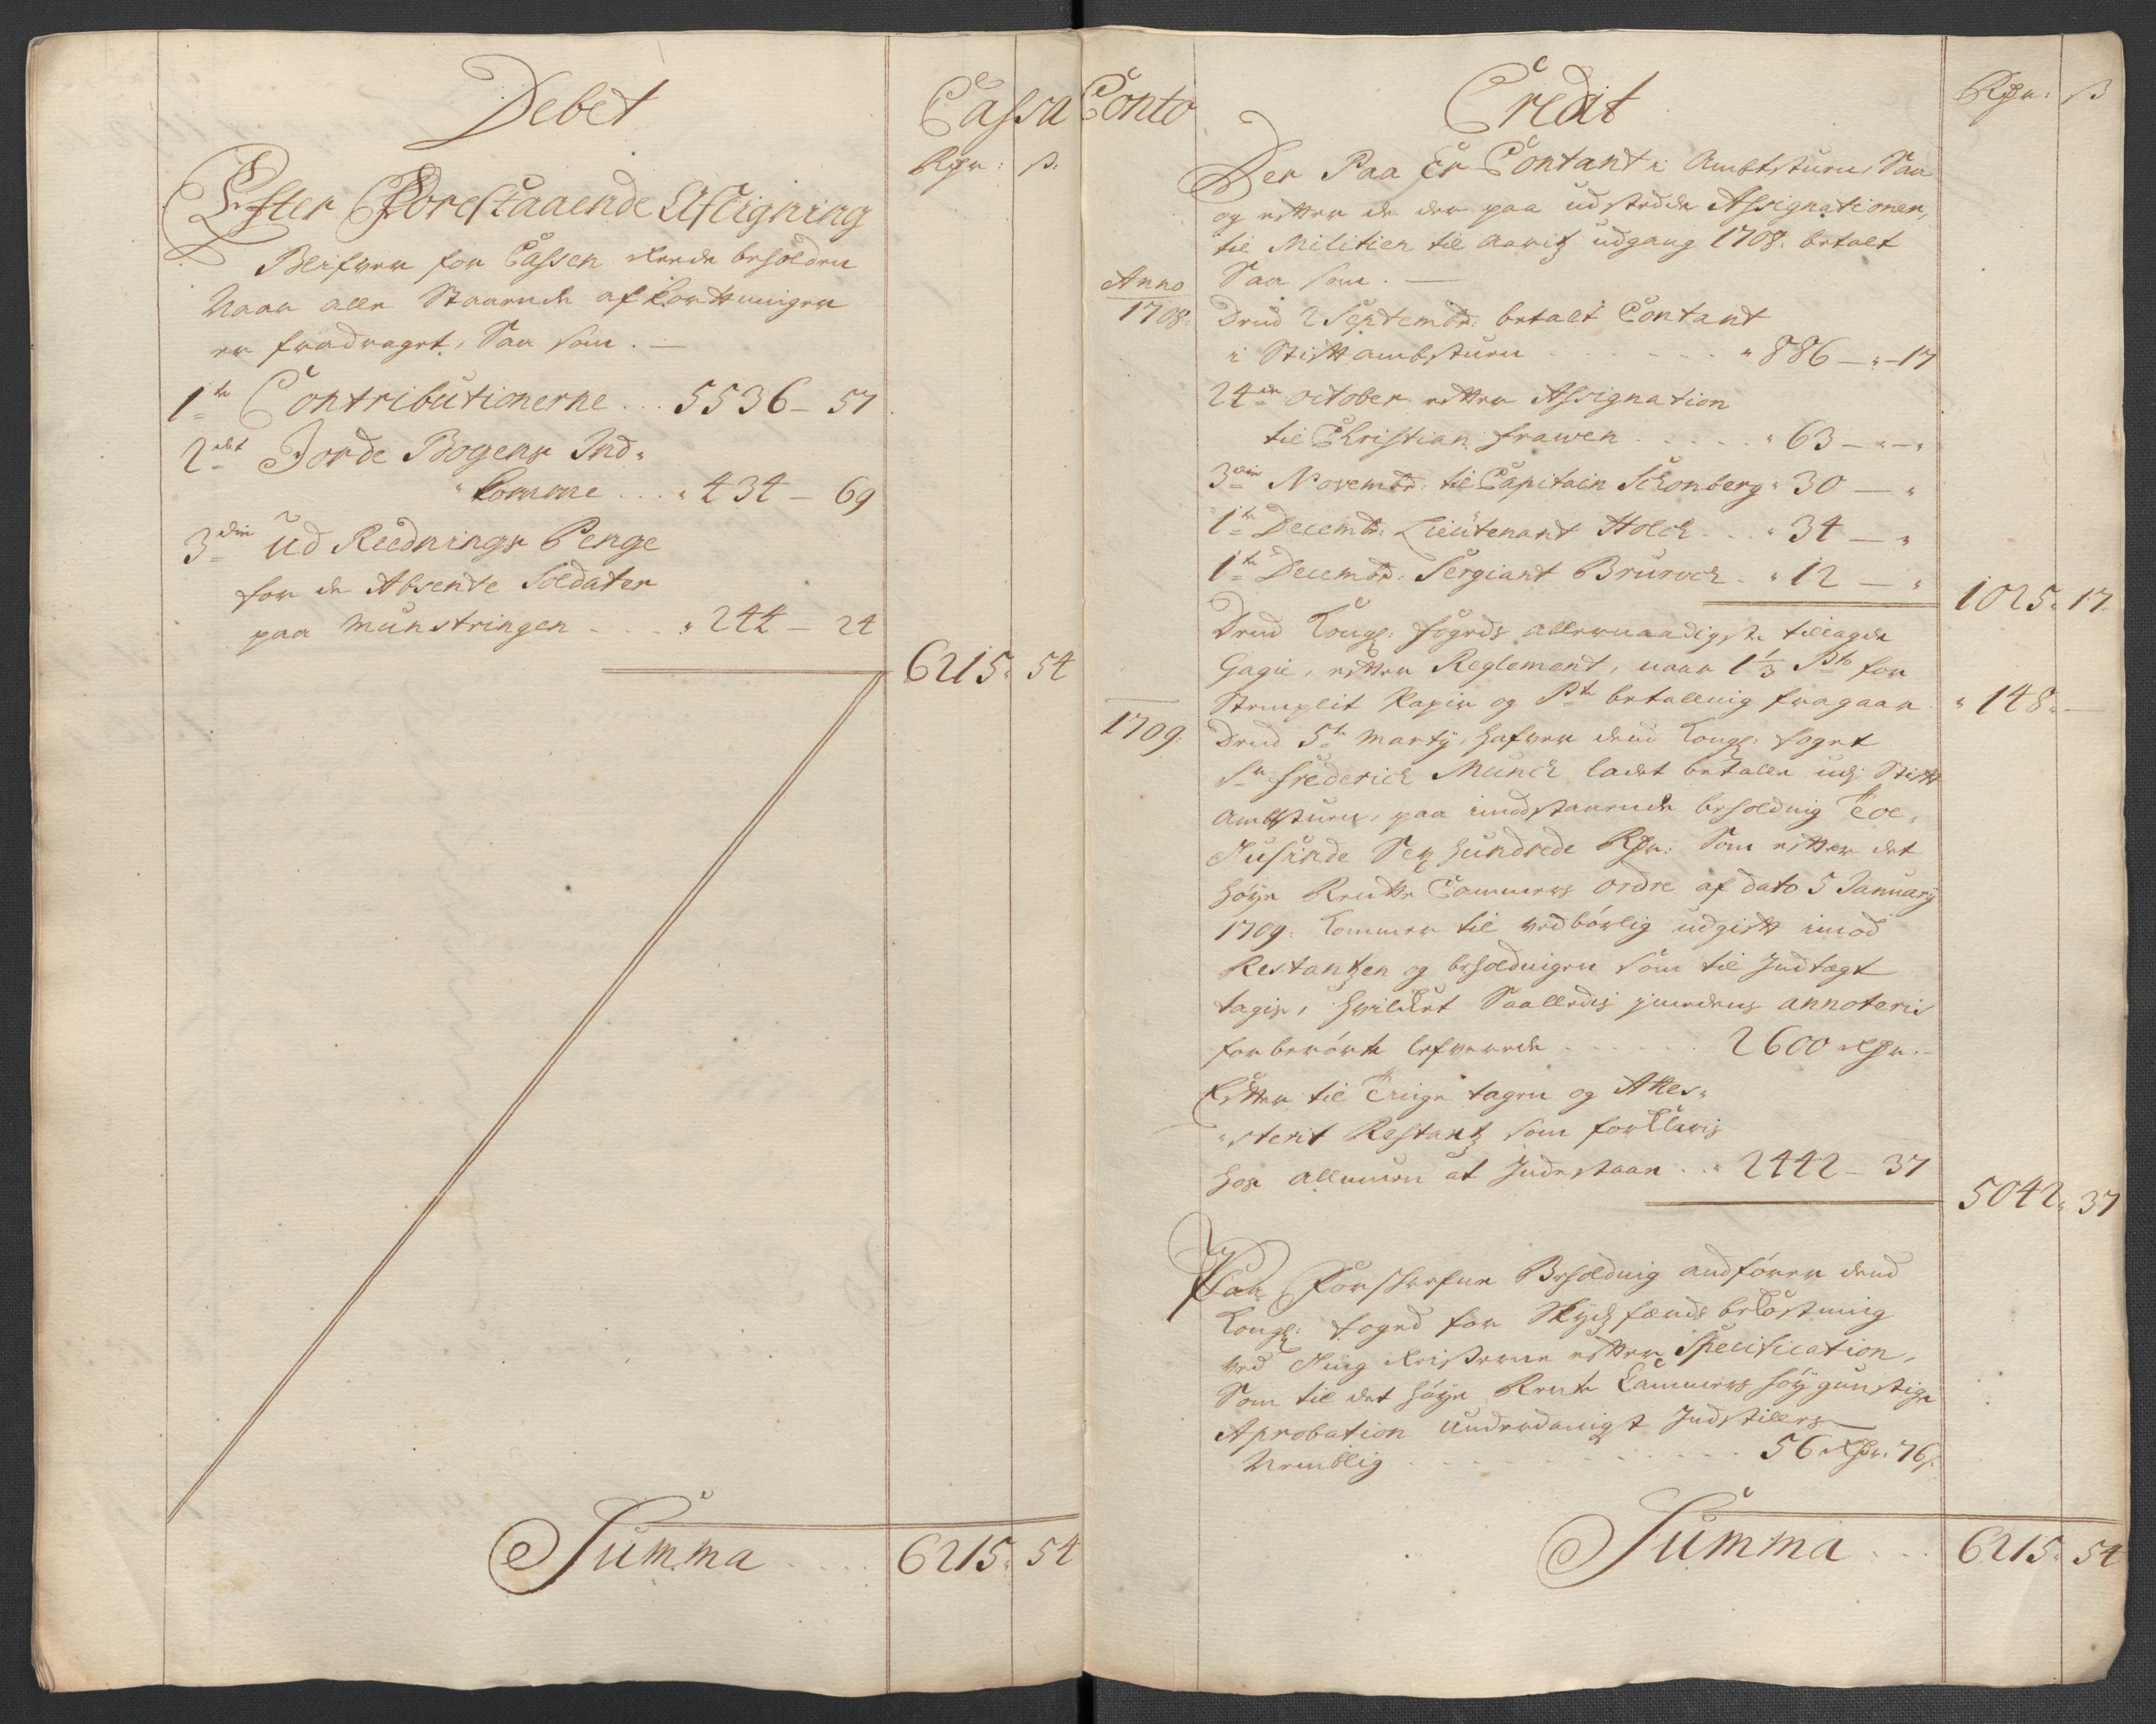 Debet
Cassa Conto
Rdr: ß.
Efter Forestaaende Afligning
Blifver for Cassen Rede beholden
Naar alle Staaende afkortninger
er fradraget, Saa som. —
1te Contributionerne ... 5536 - 57
2det Jorde Bogens Ind-
komme .... 434 - 69
3die Ud Rednings Penge
for de Absente Soldater
paa Munstringen ... 244 - 24
6215. 54
Summa .... 6215. 54
Credit
Rdr: ß
Der Paa Er Contant i Ambtstuen, Saa
og efter de der paa udstedde Assignationer,
til Militien til Aaritz udgang 1708. betalt
Saa som. —
Anno
1708.
Dend 2 Septembr: betalt Contant
i Stiftambstuen ...... 886 — 17
24de October efter Assignation
til Christian frawen ..... 63 — "
3die Novembr: til Capitain Schonberg 30 — "
1te Decembr: Lieutenant Holch ... 34 — "
1te Decembr: Sergiant Bruroch . 12 — "
1025. 17.
Dend Kongl: fogeds allernaadigste tillagde
Gagie, efter Reglement, naar 1 1/3 Pto for
Stemplit Papir og Pto betalling fragaar
148. —
1709.
Dend 5te Marty, hafver dend Kongl: foget
Sr Frederich Munch ladet betalle udj Stift
Ambstuen, paa imodstaaende beholdnig Toe,
Tusinde Sex hundrede Rdr: Som efter det
höye Rente Cammers ordre af dato 5 January
1709. kommer til vedbörlig udgift imod
Restantzen og beholdnigen som til Indtægt
tagis, hvilket Saalledis jmedens annoteris
for berörte lefverede ...... 2600 Rdr. -
Efter til Tinge tagen og Attes-
sterit Restantz som forklaris
hos allmuen at Indestaar ... 2442 - 37
5042. 37
Paa Forskrefne Beholdnig andförer dend
Kongl: foged for Skydsfærds bekostning
ved Ting Reiserne efter Specification,
Som til det höye Rente Cammers höygunstige
Aprobation underdanigst Indstilles
Nemblig ......... 56 Rdr. 76 ß.
Summa ... 6215. 54